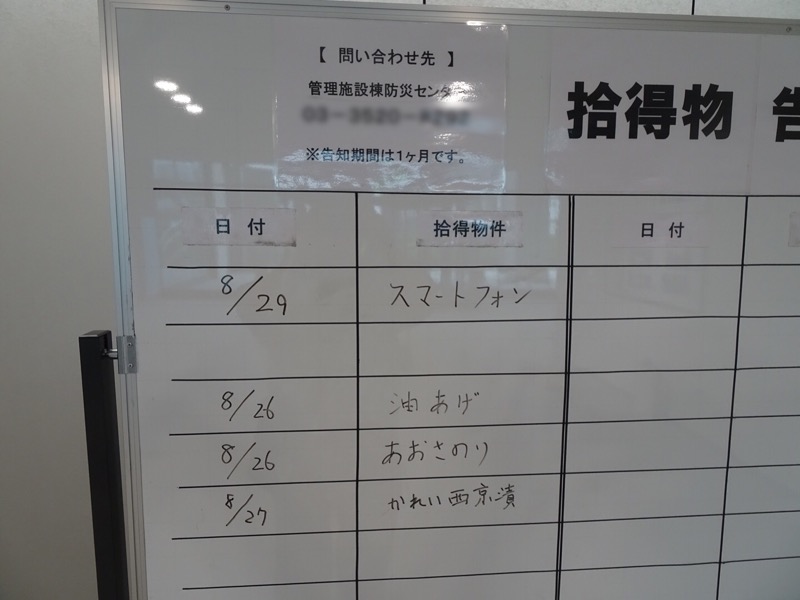 【 問い合わせ先 】
管理施設棟防災センター
※告知期間は1ヶ月です。
拾得物 告
日 付 拾得物件 日 付
8/29 スマートフォン
8/26 油あげ
8/26 あおさのり
8/27 かれい西京漬